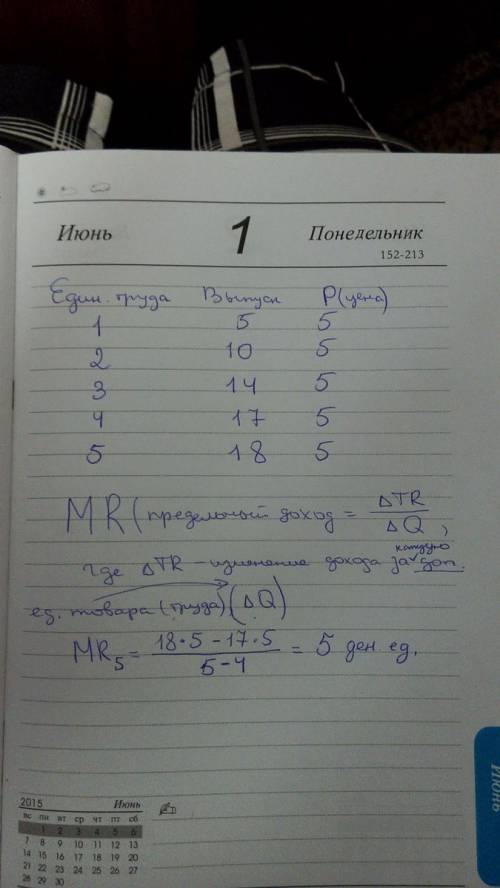 Июнь 1 Понедельник
152-213
Един. труда Выпуск P(цена)
1 5 5
2 10 5
3 14 5
4 17 5
5 18 5
MR (предельный доход = ΔTR / ΔQ ,
где ΔTR – изменение дохода за каждую доп.
ед. товара (труда) (ΔQ)
MR₅ = 18·5 – 17·5 / 5-4 = 5 ден ед.
Июнь
2015 Июнь
вс пн вт ср чт пт сб
1 2 3 4 5 6
7 8 9 10 11 12 13
14 15 16 17 18 19 20
21 22 23 24 25 26 27
28 29 30